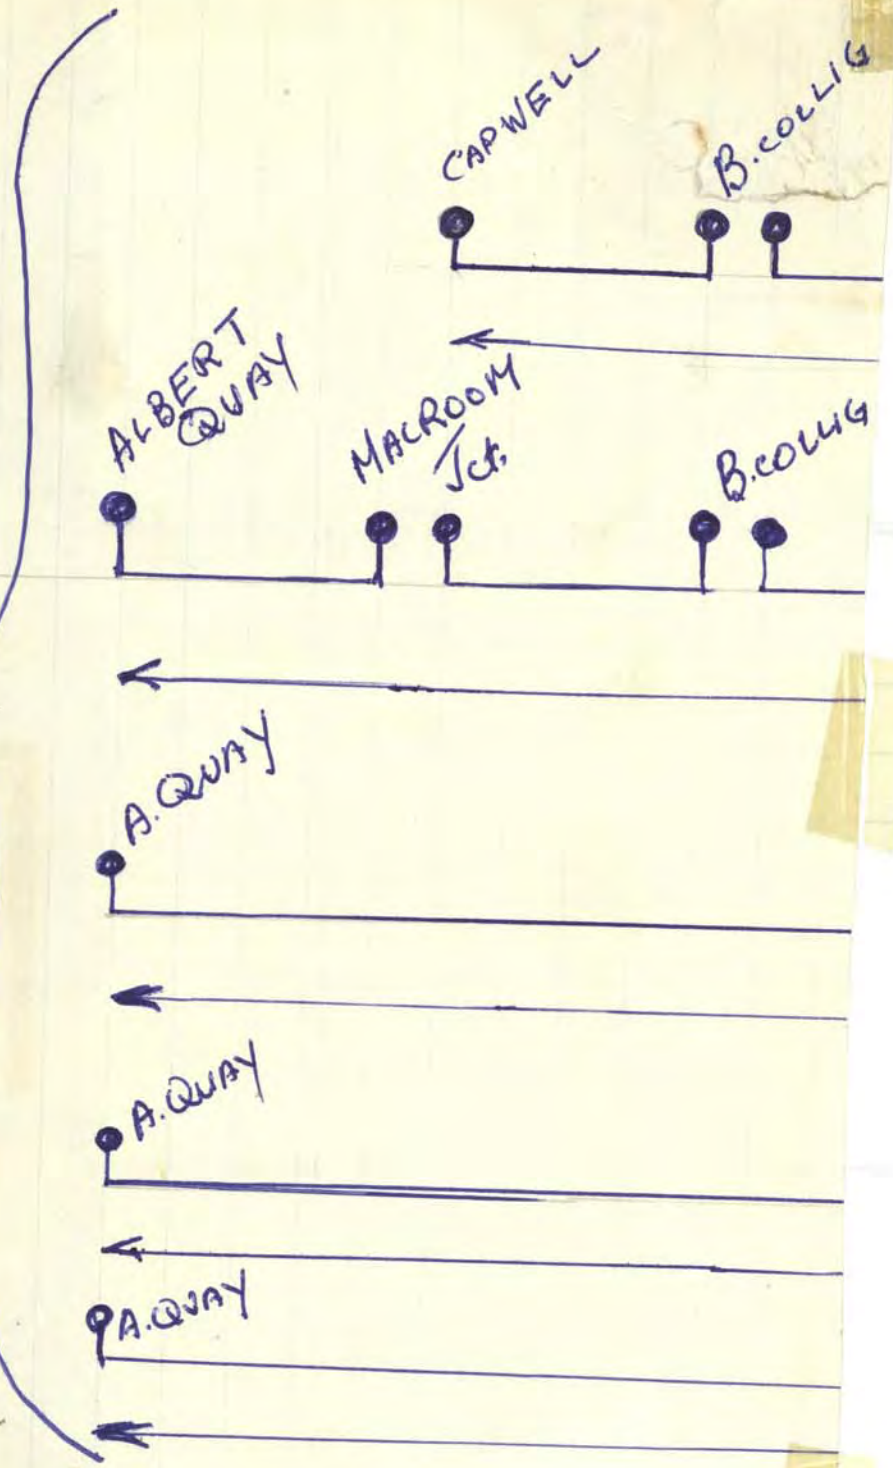 CAPWELL
B.COLLIG
ALBERT
QUAY
MACROOM
Jct.
B.COLLIG
A.QUAY
A.QUAY
A.QUAY